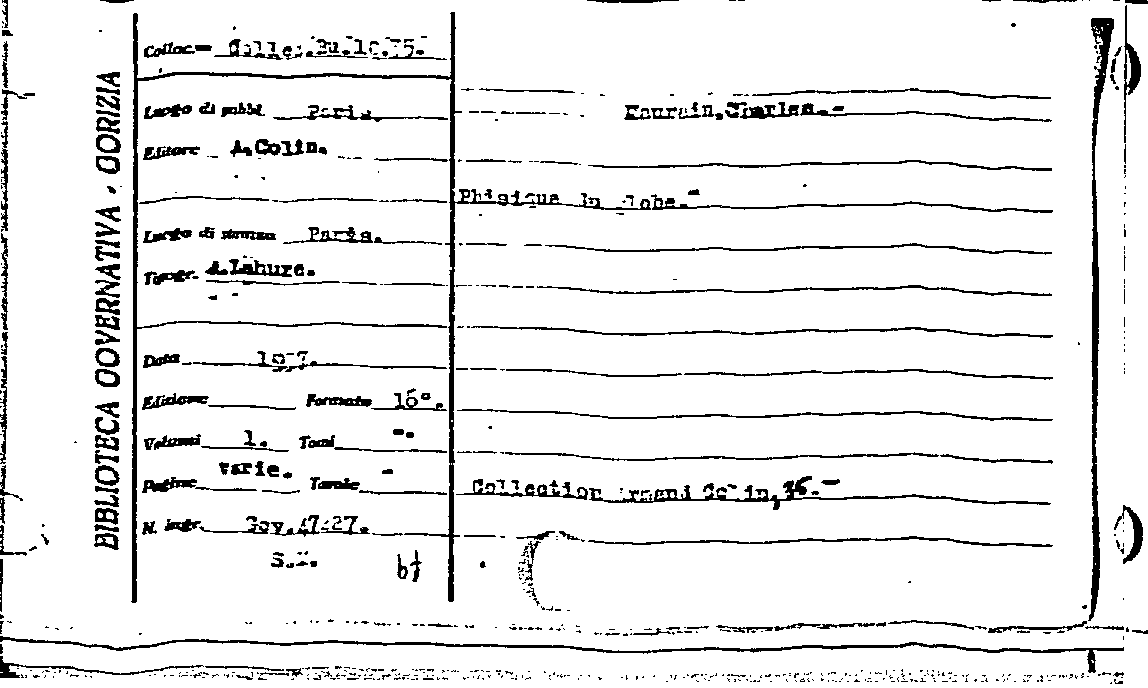 BIBLIOTECA GOVERNATIVA - GORIZIA
Colloc.=
Luogo di pubbl. Paris.
Editore A.Colin.
Luogo di stampa Paris.
Tipogr. A.Lahure.
Data
Edizione Formato 16°.
Volumi 1. Tomi -.
Pagine varie. Tavole -
N. ingr. Gov.
bf
Maurain,Charles.-
Phisique du Globe.-
Collection Armand Colin, 35.-